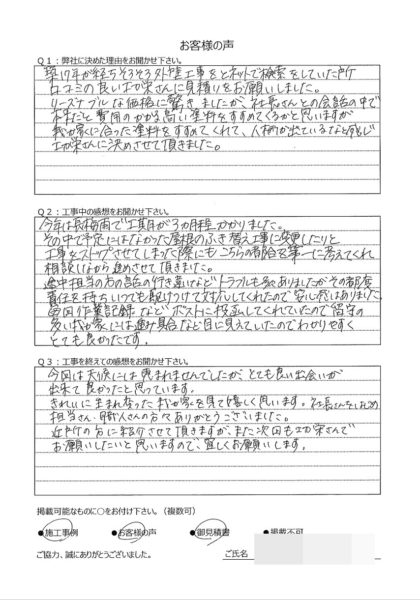 お客様の声
Q1：弊社に決めた理由をお聞かせ下さい。
築17年が経ちそろそろ外壁工事をとネットで検索をしていた所
口コミの良い功栄さんに見積りをお願いしました。
リーズナブルな価格に驚きましたが、社長さんとの会話の中で
本来だと費用のかかる高い塗料をすすめてくるかと思いますが
我が家に合った塗料をすすめてくれて、人柄が出ているなと感じ
功栄さんに決めさせて頂きました。
Q2：工事中の感想をお聞かせ下さい。
今年は長梅雨で工期が3ヵ月程かかりました。
その中で予定にはなかった屋根のふき替え工事に変更したりと
工事をストップさせてしまった際にもこちらの都合を第一に考えてくれ
相談しながら進めさせて頂きました。
途中担当の方の話の行き違いなどトラブルも多々ありましたがその都度
責任を持ちいつでも駆けつけて対応してくれたので安心感はありました。
毎回作業記録などポストに投函してくれていたので留守の
多い我が家には進み具合など目に見えていたのでわかりやすく
とても良かったです。
Q3：工事を終えての感想をお聞かせ下さい。
今回は天候には恵まれませんでしたが、とても良い出会いが
出来て良かったと思っています。
きれいに生まれ変わった我が家を見て嬉しく思います。社長さんをはじめ
担当さん、職人さんの方々ありがとうございました。
近所の方に紹介させて頂きますが、また次回も功栄さんで
お願いしたいと思いますので、宜しくお願いします。
掲載可能なものに○をお付け下さい。（複数可）
●施工事例 ●お客様の声 ●御見積書 ●掲載不可
ご協力、誠にありがとうございました。 ご氏名